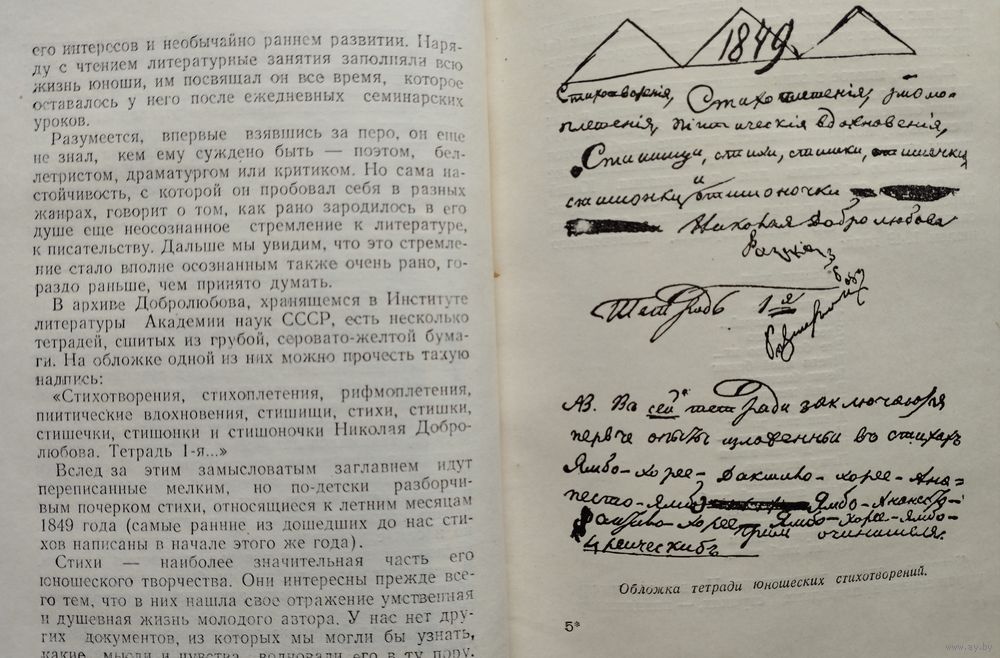 его интересов и необычайно раннем развитии. Наря-
ду с чтением литературные занятия заполняли всю
жизнь юноши, им посвящал он все время, которое
оставалось у него после ежедневных семинарских
уроков.
Разумеется, впервые взявшись за перо, он еще
не знал, кем ему суждено быть — поэтом, бел-
летристом, драматургом или критиком. Но сама на-
стойчивость, с которой он пробовал себя в разных
жанрах, говорит о том, как рано зародилось в его
душе еще неосознанное стремление к литературе,
к писательству. Дальше мы увидим, что это стремле-
ние стало вполне осознанным также очень рано, го-
раздо раньше, чем принято думать.
В архиве Добролюбова, хранящемся в Институте
литературы Академии наук СССР, есть несколько
тетрадей, сшитых из грубой, серовато-желтой бума-
ги. На обложке одной из них можно прочесть такую
надпись:
«Стихотворения, стихоплетения, рифмоплетения,
пиитические вдохновения, стишищи, стихи, стишки,
стишечки, стишонки и стишоночки Николая Добро-
любова. Тетрадь 1-я...»
Вслед за этим замысловатым заглавием идут
переписанные мелким, но по-детски разборчи-
вым почерком стихи, относящиеся к летним месяцам
1849 года (самые ранние из дошедших до нас сти-
хов написаны в начале этого же года).
Стихи — наиболее значительная часть его
юношеского творчества. Они интересны прежде все-
го тем, что в них нашла свое отражение умственная
и душевная жизнь молодого автора. У нас нет дру-
гих документов, из которых мы могли бы узнать,
какие мысли и чувства волновали его в ту пору.
1849
Стихотворенія, Стихоплетенія, риѳмо-
плетенія, піитическія вдохновенія,
Стишищи, стихи, стишки, стишечки,
стишонки и стишоночки
Николая Добролюбова
Тетрадь 1я
NB. Въ сей тетради заключаются
первые опыты изложенные въ стихахъ
Ямбо-хорее-Дактило-хорее-Ана-
песто-Ямбо Ямбо-Анапесто-
Дактило-хорее Ямбо-хорее-Ямбо-
Обложка тетради юношеских стихотворений.
5*
www.ay.by